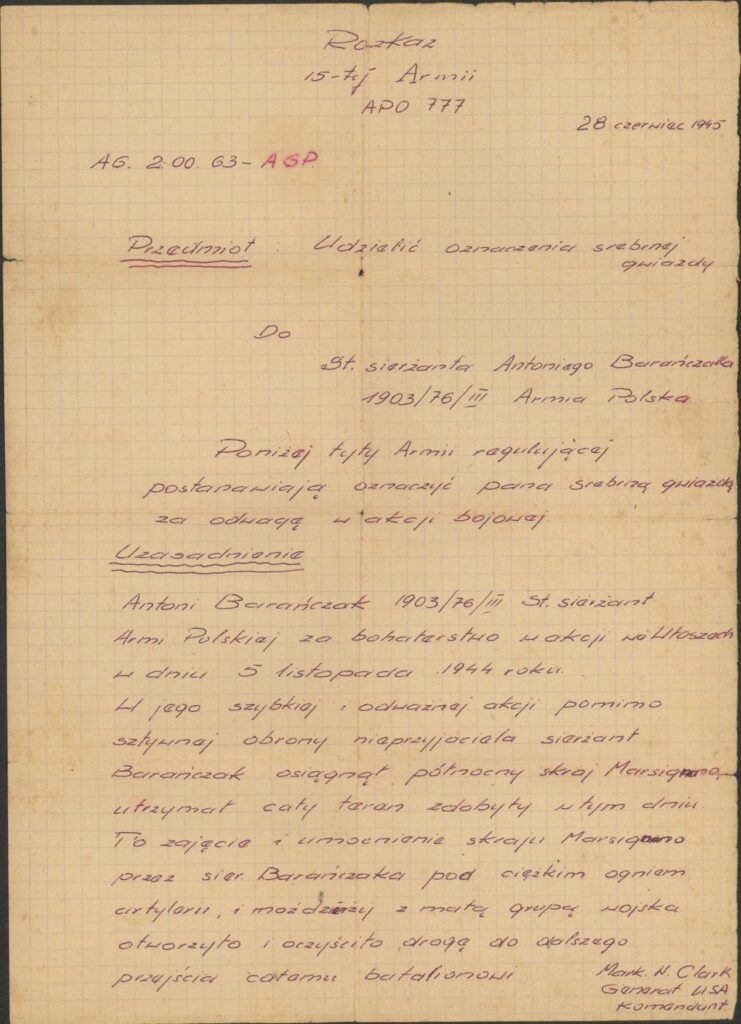 Rozkaz
15-tej Armii
APO 777
28 czerwiec 1945
AG. 200 63- AGP
Przedmiot : Udzielić oznaczenia srebrnej
gwiazdy
Do
St. sierżanta Antoniego Barańczaka
1903/76/III Armia Polska
Poniżej tyty Armii regulującej
postanawiają oznaczyć pana srebrną gwiazdą
za odwagę w akcji bojowej.
Uzasadnienie
Antoni Barańczak 1903/76/III St. sierżant
Armi Polskiej za bohaterstwo w akcji we Włoszech
w dniu 5 listopada 1944 roku.
W jego szybkiej i odważnej akcji pomimo
sztywnej obrony nieprzyjaciela sierżant
Barańczak osiągnął północny skraj Marsignano,
utrzymał cały teren zdobyty w tym dniu.
To zajęcie i umocnienie skraju Marsignano
przez sier. Barańczaka pod ciężkim ogniem
artylerii, i moździerzy z małą grupą wojska
otworzyło i oczyściło drogę do dalszego
przejścia całemu batalionowi
Mark. W. Clark
Generał USA
Komendant